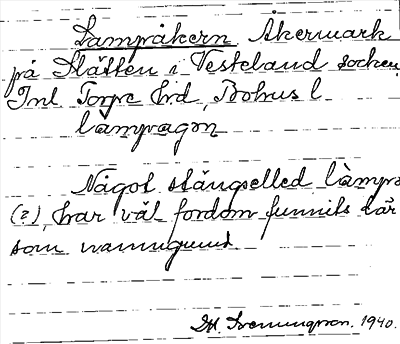 Lampåkern Åkermark
på Slätten i Vesteland socken
Inl Torpe hrd, Bohus l
lampragon
Något stängselled lämps
(?), har väl fordom funnits här
som namngrund.
1940.